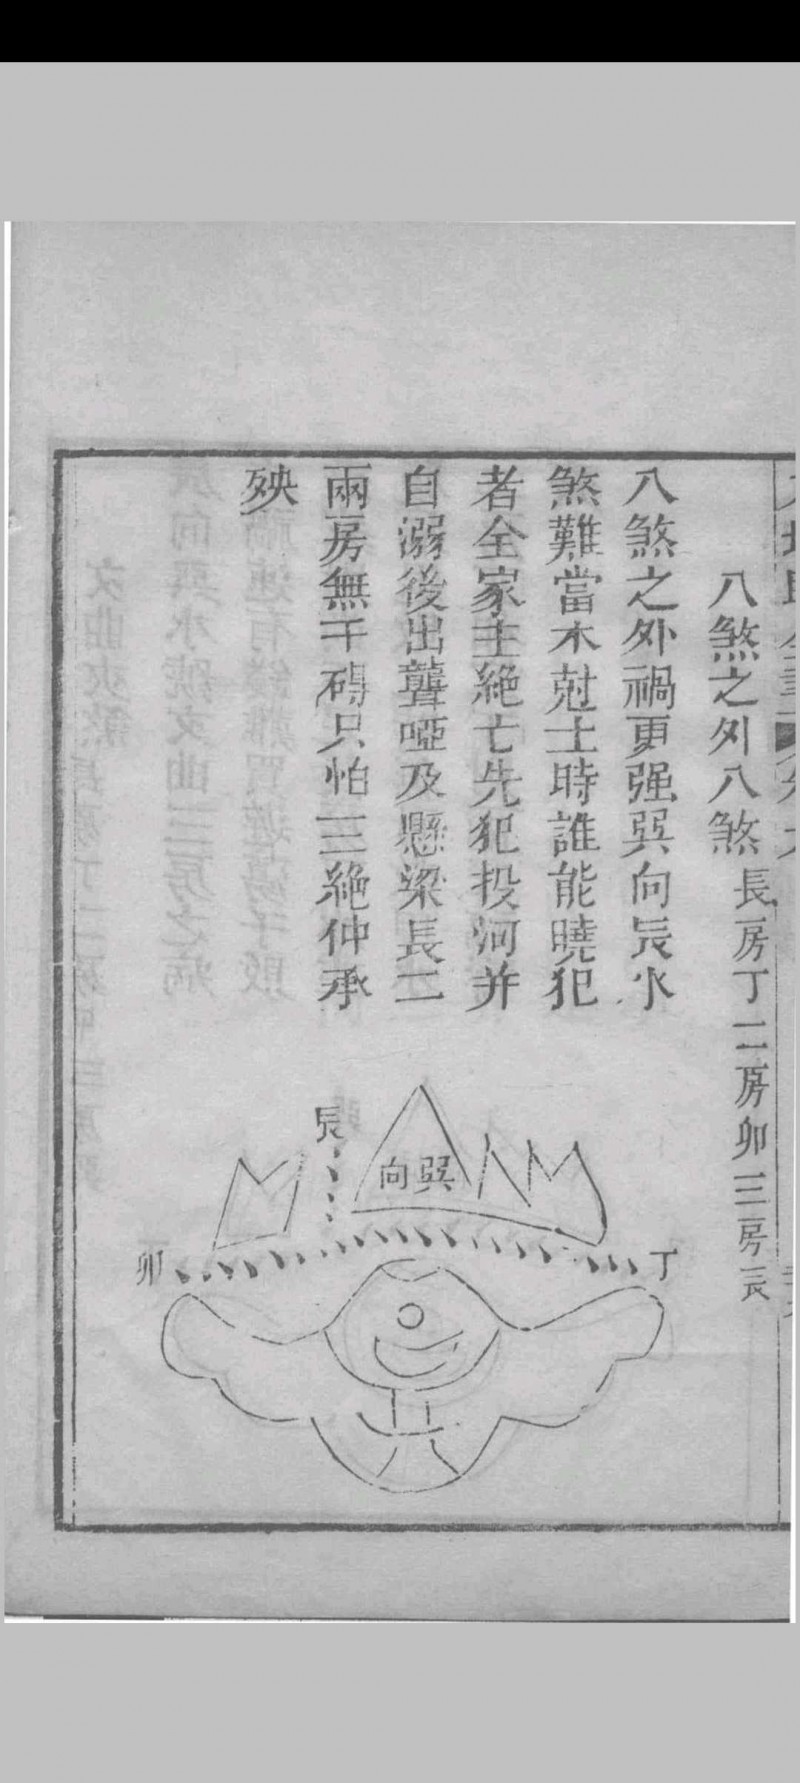 八煞之外八煞 長房丁二房卯三房辰
八煞之外禍更强巽向辰水
煞難當木尅土時誰能曉犯
者全家主絶亡先犯投河并
自溺後出聾啞及懸梁長二
兩房無干碍只怕三絶仲承
殃
辰
巽向
卯
丁